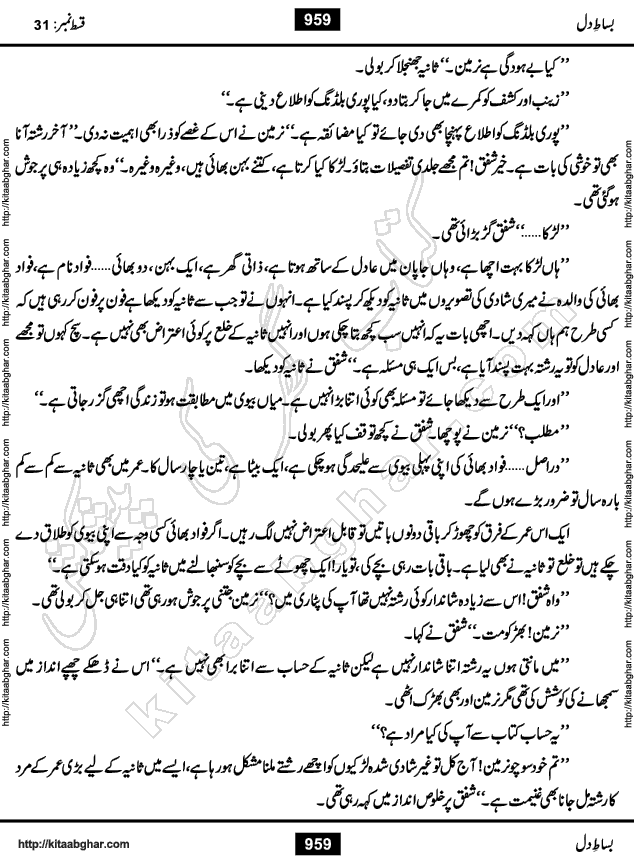 بساطِ دل 959 قسط نمبر: 31
’’کیا بے ہودگی ہے نرمین۔‘‘ ثانیہ جھنجلا کر بولی۔
’’زینب اور کشف کو کمرے میں جا کر بتا دو، کیا پوری بلڈنگ کو اطلاع دینی ہے۔‘‘
’’پوری بلڈنگ کو اطلاع پہنچا بھی دی جائے تو کیا مضائقہ ہے۔‘‘ نرمین نے اس کے غصے کو ذرا بھی اہمیت نہ دی۔’’ آخر رشتہ آنا
بھی تو خوشی کی بات ہے۔ خیر شفق! تم مجھے جلدی تفصیلات بتاؤ۔ لڑکا کیا کرتا ہے، کتنے بہن بھائی ہیں، وغیرہ وغیرہ۔‘‘ وہ کچھ زیادہ ہی پر جوش
ہو گئی تھی۔
’’لڑکا.....‘‘ شفق گڑبڑائی تھی۔
’’ہاں لڑکا بہت اچھا ہے، وہاں جاپان میں عادل کے ساتھ ہوتا ہے، ذاتی گھر ہے، ایک بہن، دو بھائی......فواد نام ہے، فواد
بھائی کی والدہ نے میری شادی کی تصویروں میں ثانیہ کو دیکھ کر پسند کیا ہے۔ انہوں نے تو جب سے ثانیہ کو دیکھا ہے فون پر فون کر رہی ہیں کہ
کسی طرح ہم ہاں کہہ دیں۔ اچھی بات یہ کہ انہیں سب کچھ بتا چکی ہوں اور انہیں ثانیہ کے خلع پر کوئی اعتراض بھی نہیں ہے۔ سچ کہوں تو مجھے
اور عادل کو تو یہ رشتہ بہت پسند آیا ہے، بس ایک ہی مسئلہ ہے۔‘‘ شفق نے ثانیہ کو دیکھا۔
’’اور ایک طرح سے دیکھا جائے تو مسئلہ بھی کوئی اتنا بڑا نہیں ہے۔ میاں بیوی میں مطابقت ہو تو زندگی اچھی گزر جاتی ہے۔‘‘
’’مطلب؟‘‘ نرمین نے پوچھا۔ شفق نے کچھ توقف کیا پھر بولی۔
’’دراصل......فواد بھائی کی اپنی پہلی بیوی سے علیحدگی ہو چکی ہے، ایک بیٹا ہے، تین یا چار سال کا۔ عمر میں بھی ثانیہ سے کم سے کم
بارہ سال تو ضرور بڑے ہوں گے۔
ایک اس عمر کے فرق کو چھوڑ کر باقی دونوں باتیں تو قابل اعتراض نہیں لگ رہیں۔ اگر فواد بھائی کسی وجہ سے اپنی بیوی کو طلاق دے
چکے ہیں تو خلع تو ثانیہ نے بھی لیا ہے۔ باقی بات رہی بچے کی، تو یار! ایک چھوٹے سے بچے کو سنبھالنے میں ثانیہ کو کیا دقت ہو سکتی ہے۔‘‘
’’واہ شفق! اس سے زیادہ شاندار کوئی رشتہ نہیں تھا آپ کی پٹاری میں؟‘‘ نرمین جتنی پر جوش ہو رہی تھی اتنا ہی جل کر بولی تھی۔
’’نرمین! بھڑکو مت۔‘‘ شفق نے کہا۔
’’میں مانتی ہوں یہ رشتہ اتنا شاندار نہیں ہے لیکن ثانیہ کے حساب سے اتنا برا بھی نہیں ہے۔‘‘ اس نے ڈھکے چھپے انداز میں
سمجھانے کی کوشش کی تھی مگر نرمین اور بھی بھڑک اٹھی۔
’’یہ حساب کتاب سے آپ کی کیا مراد ہے؟‘‘
’’تم خود سوچو نرمین! آج کل تو غیر شادی شدہ لڑکیوں کو اچھے رشتے ملنا مشکل ہو رہا ہے، ایسے میں ثانیہ کے لیے بڑی عمر کے مرد
کا رشتہ مل جانا بھی غنیمت ہے۔‘‘ شفق پر خلوص انداز میں کہہ رہی تھی۔
کتاب گھر کی پیشکش
kitaabghar.com
http://kitaabghar.com http://kitaabghar.com http://kitaabghar.com http://kitaabghar.com http://kitaabghar.com http://kitaabghar.com
http://kitaabghar.com http://kitaabghar.com http://kitaabghar.com http://kitaabghar.com http://kitaabghar.com http://kitaabghar.com
بساطِ دل 959 http://kitaabghar.com